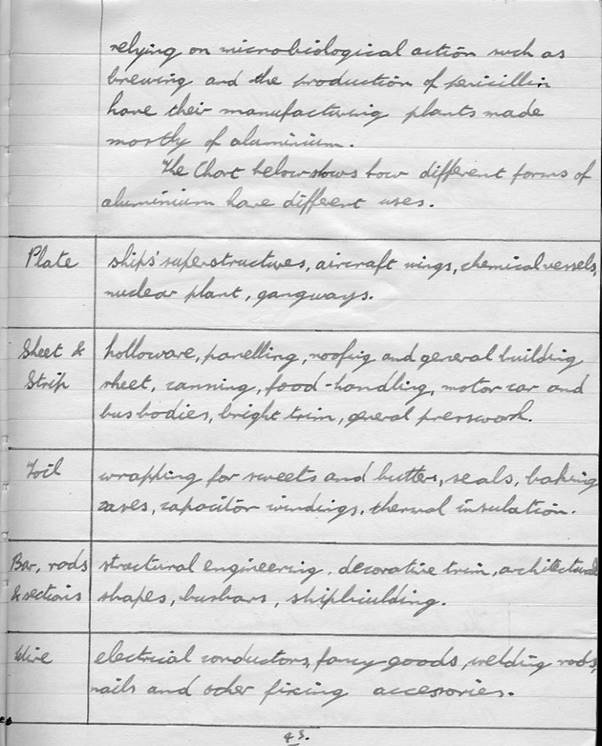 relying on microbiological action such as
brewing and the production of penicillin
have their manufacturing plants made
mostly of aluminium.
The Chart below shows how different forms of
aluminium have different uses.
Plate ships' superstructures, aircraft wings, chemical vessels,
nuclear plant, gangways.
Sheet & holloware, panelling, roofing and general building
Strip sheet, canning, food-handling, motor car and
bus bodies, bright trim, general presswork.
Foil wrapping for sweets and butters, seals, baking
cases, capacitor windings, thermal insulation.
Bar, rods structural engineering, decorative trim, architectural
& sections shapes, busbars, shipbuilding.
Wire electrical conductors, fancy-goods, welding rods,
nails and other fixing accessories.
43.